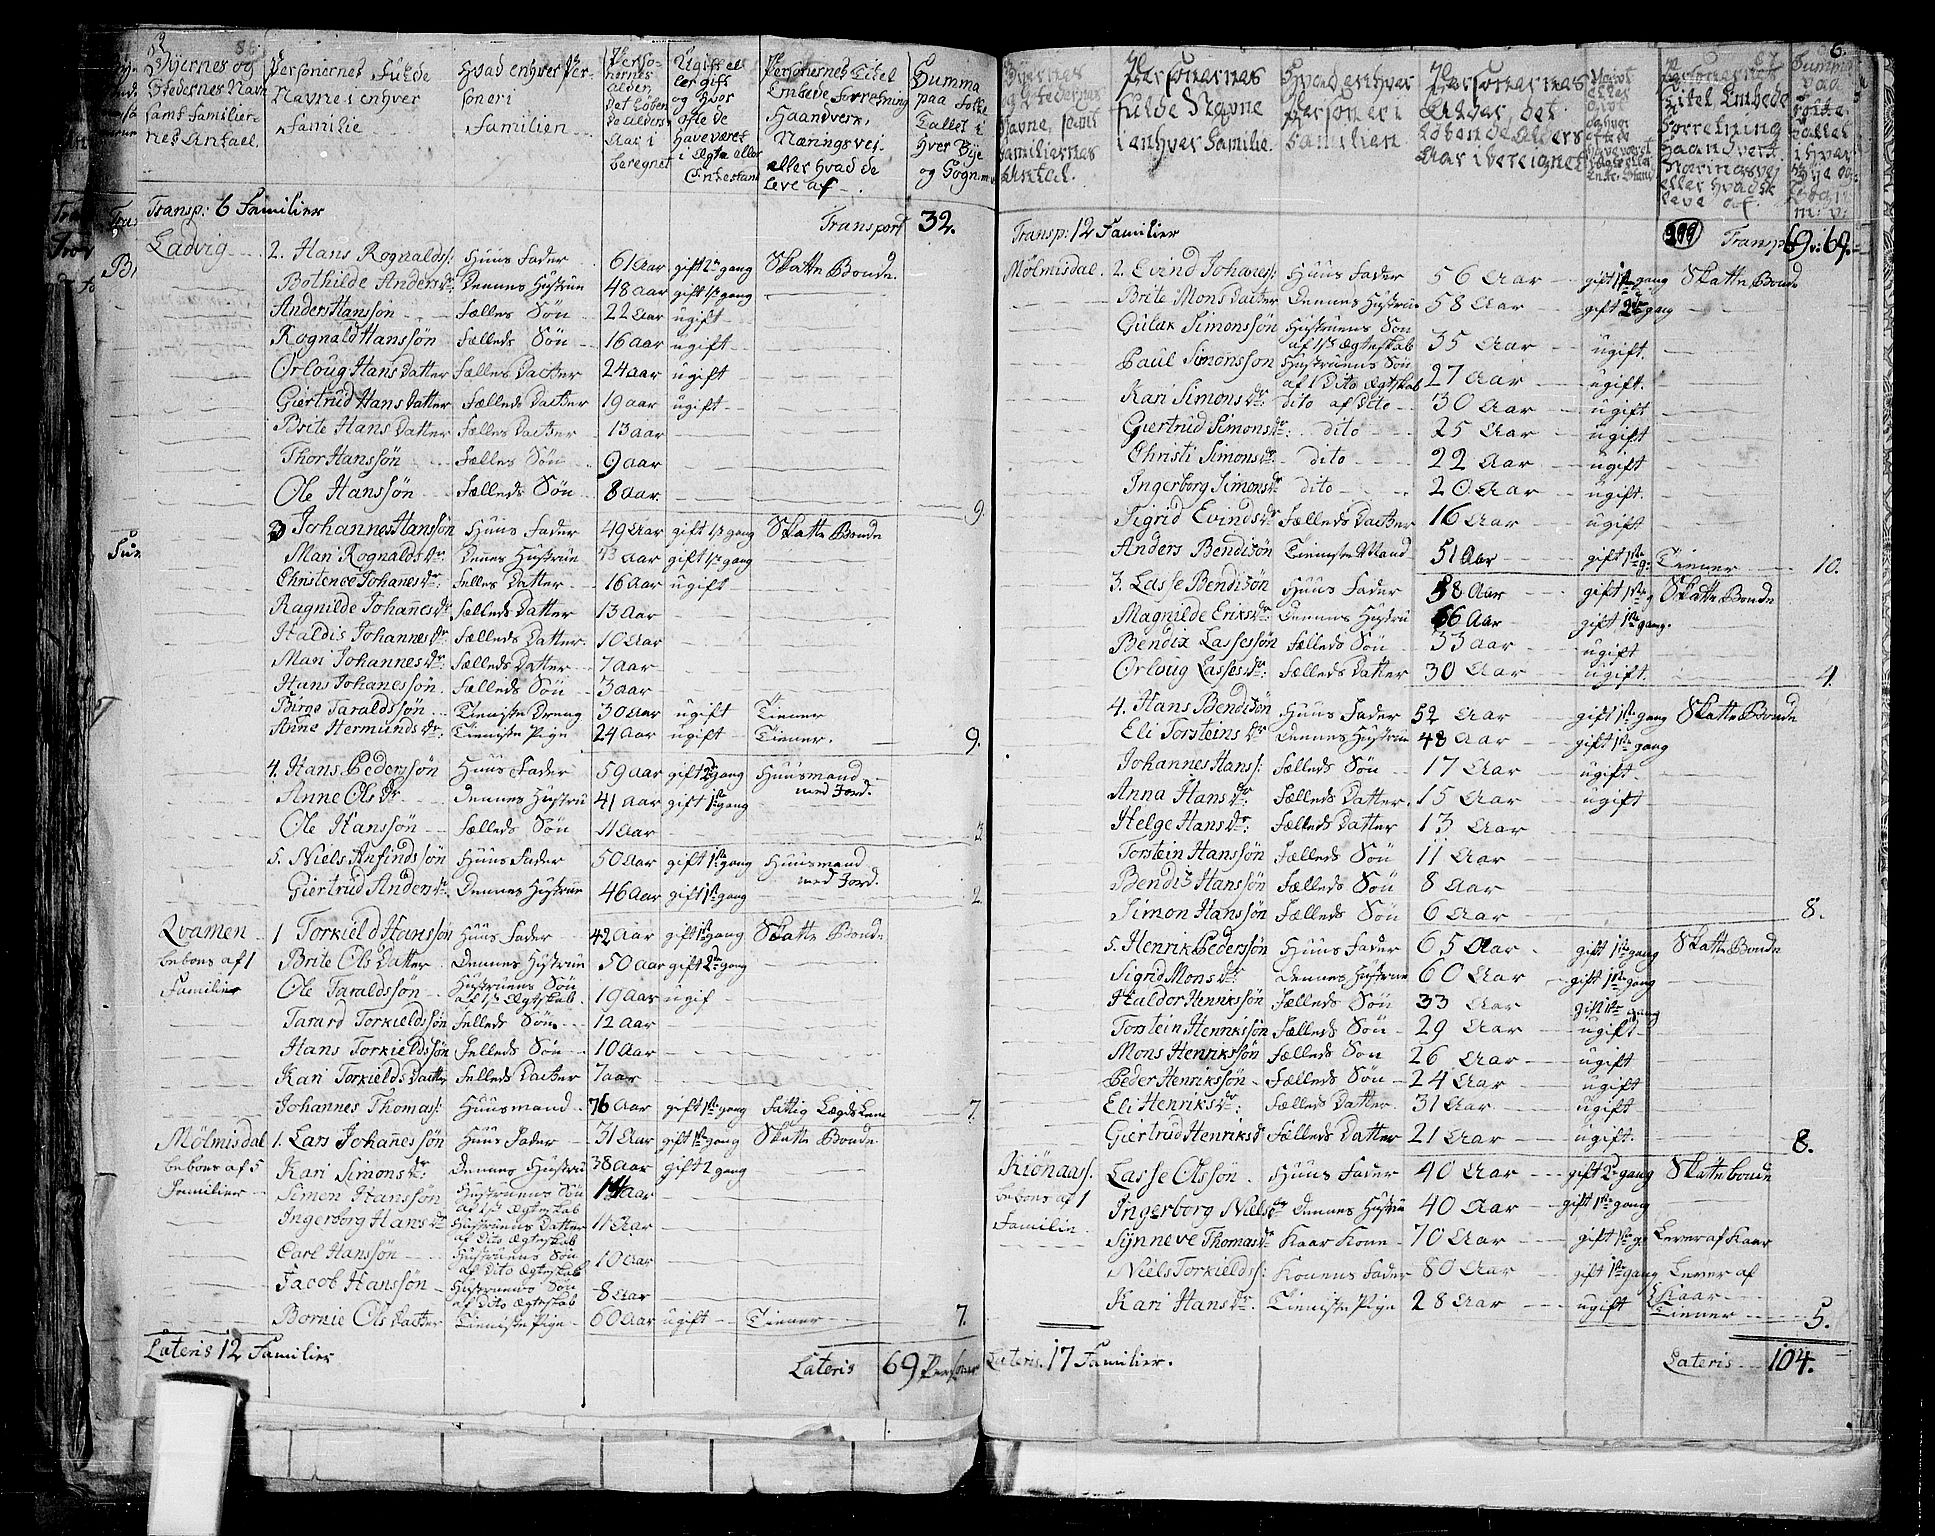 Byernes og Stedernes Navn samt Familiernes Antael.
Personernes Fulde Navne i enhver Familie
Hvad enhver Person er i Familien
Personernes alder det Løbende alders Aar i beregnet
Ugift eller gift og hvor ofte de have været i Ægte eller Enkestand
Personernes Titel Embede Forretning Haandverk, Næringsvej eller hvad de leve af
Summa paa Folke Tallet i hver Bye og Sogn
Transp: 6 Familier Transport 32.
Ladvig 2. Hans Rognalds: Huus Fader 61 Aar gift 2n gang Skatte Bonde.
Bothilde Andersdr: Dennes Hustrue 48 aar gift 1st gang
Anders Hansson Fælles Søn 22 Aar ugift
Rognald Hanssøn Fælleds Søn 16 aar ugift
Orloug Hans Datter Fælles Datter 24 aar ugift
Giertrud Hans Datter Fælleds Datter 19 aar ugift
Brite Hans Datter Fælles Datter 13 aar
Thor Hanssøn Fælles Søn 9 aar
Ole Hanssøn Fælleds Søn 8 aar 9.
3 Johannes Hanssøn Huus Fader 49 Aar gift 1st gang Skatte Bonde
Mari Rognaldsdr Dennes Hustrue 43 aar gift 1st gang
Christence Johanesdr: Felles Datter 16 aar ugift
Ragnilde Johannesdr: Felleds Datter 13 Aar
Haldis Johannesdr: Fælleds Datter 10 Aar
Mari Johannesdr: Fælleds Datter 7 aar
Hans Johanessøn Fælleds Søn 3 aar
Birge Taraldssøn Tieniste Dreng 30 Aar ugift Tiener
Anne Hermundsdr: Tieniste Pige 24 Aar ugift Tiener. 9.
4. Hans Pederssøn Huus Fader 59 aar gift 2den gang Huusmand med Jord.
Anne Olsdr Dennes Hustru 41 aar gift 1ste gang
Ole Hanssøn Fælleds Søn 11 Aar 3.
5. Niels Anfindssøn Huus Fader 50 Aar gift 1ste gang Huusmand med Jord.
Giertrud Andersdr: Dennes Hustrue 46 Aar gift 1st gang 2.
Qvamen 1 Torkield Hanssøn Huus Fader 42 Aar gift 1st gang Skatte Bonde
bebons af 1 Brite Ols Datter Dennes Hustrue 50 aar gift 2den gang
Familier Ole Taraldssøn Hustruens Søn af 1st Ægteskab 19 Aar ugif
Tarard Torkieldssøn Felleds Søn 12 Aar
Hans Torkieldssøn Felleds Søn 10 Aar
Kari Torkields Datter Felleds Datter 7 aar
Johannes Thomas: Huusmand 76 Aar gift 1ste gang Fattig Lægds Lem 7.
Mølmisdal 1. Lars Johannessøn Huus Fader 31 Aar gift 1ste gang Skatte Bonde
bebons af 5 Kari Simonsdr: Dennes Hustru 38 aar gift 2 gang
Familier Simen Hanssøn Hustruens Søn af 1st Ægteskab 14 aar
Ingerborg Hansdr Hustruens Datter af Dito Ægteskab 11 Aar
Carl Hanssøn Hustruens Søn af Dito Ægteskab 10 Aar
Jacob Hanssøn Hustruens Søn af Dito Ægteskab 8 Aar
Bornie Ols Datter Tieniste Pige 60 Aar ugift Tiener 7.
Lateris 12 Familier Lateris 69 Personer
Byernes og Stedernes Navne, samt Familiernes Antal.
Personernes fulde Navne i enhver Familie.
Hvad enhver Person er i Familien
Personernes Alder, det Løbende Alders Aar i bereignet
Personernes Titel Embede Forretning Haandverk Næringsvej eller hvad de leve af
Transp: 12 Familier 299 Transp: 69. 69.
Mølmisdal. 2. Evind Johanes: Huus Fader 56 Aar gift 1ste gang Skatte Bonde
Brite Mons Datter Dennes Hustrue 58 Aar gift 2den gang
Gulak Simonssøn Hustruens Søn af 1st Ægteskab 35 Aar ugift.
Paul Simonsson Hustruens Søn af 1 Dito Ægtskab 27 Aar ugift.
Kari Simonsdr: Dito af Dito 30 Aar ugift
Giertrud Simonsdr: dito 25 Aar ugift
Christi Simonsdr dito 22 Aar ugift
Ingerborg Simonsdr dito 20 Aar ugift.
Sigrid Evindsdr Fælleds Datter 16 Aar ugift
Anders Bendixøn Tieniste Mand 51 Aar gift 1ste g: Tiener 10.
3. Lasse Bendixøn Huus Fader 58 Aar gift 1ste g Skatte Bonde
Magnilde Eriksdr: Dennes Hustru 66 Aar gift 1ste gang.
Bendix Lassessøn Fælleds Søn 33 aar ugift
Orloug Lassesdr: Fælleds Datter 30 Aar ugift. 4.
4. Hans Bendixøn Huus Fader 52 Aar gift 1ste gang Skatte Bonde
Eli Torsteinsdr Dennes Hustrue 48 Aar gift 1ste gang
Johannes Hans: Fælleds Søn 17 Aar ugift
Anna Hansdr: Fælleds Datter. 15 Aar ugift
Helge Hansdr: Fælleds Datter 13 Aar
Torstein Hanssøn Fælleds Søn 11 Aar
Bendix Hanssøn Fælleds Søn 8 aar
Simon Hanssøn Fælleds Søn 6 Aar 8.
5. Henrik Pederssøn Huus Fader 65 Aar gift 1ste gang Skatte Bonde
Sigrid Monsdr Dennes Hustrue 60 Aar gift 1ste gang
Haldor Henrikssøn Fælleds Søn 33 Aar gift 1ste gang
Torstein Henrikssøn Fælleds Søn 29 Aar ugift
Mons Henrikssøn Fælleds Søn 26 Aar ugift
Peder Henrikssøn Fælleds Søn 24 Aar ugift
Eli Henriksdr: Fælleds Datter. 31 Aar ugift
Giertrud Henriksd Fælleds Datter 21 Aar ugift. 8.
Kiönaass. Lasse Olssøn Huus Fader 40 Aar gift 2den gang Skatte bonde
bebons af 1 Ingerborg Nielsdr Dennes Hustru 40 Aar gift 1ste gang
Familie Synneve Thomasdr Kaar Kone 70 Aar gift 1ste g: Lever af Kaar
Niels Torkields: Konens Fader 80 Aar gift 1ste gang Lever af Kaar
Kari Hansdr: Tieniste Pige 28 Aar ugift Tiener 5.
Lateris. 17 Familier. Lateris 104.